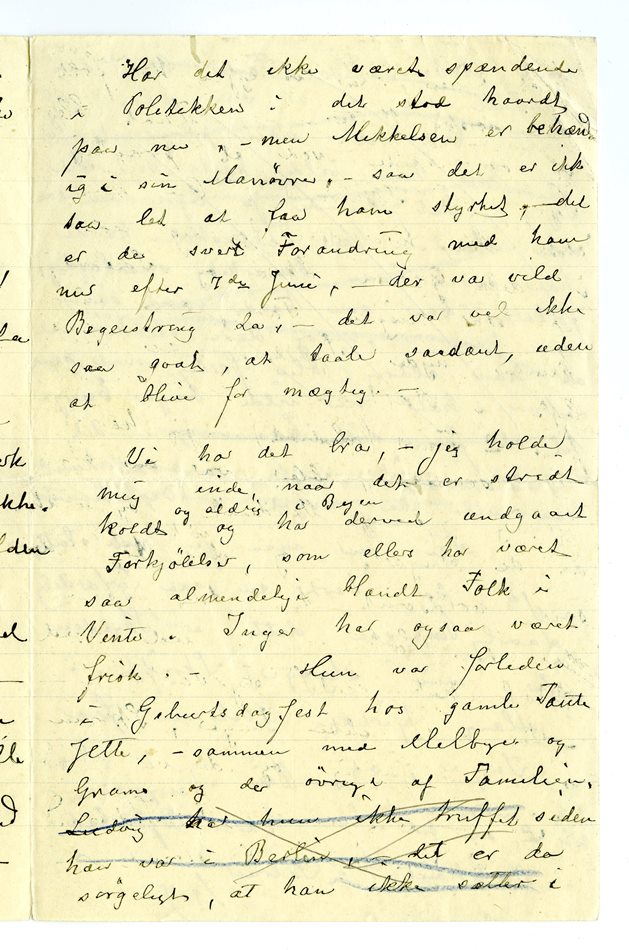 Har det ikke været spændende
i Politikken i det stod haardt
paa nu, - men Mikkelsen er behænd-
ig i sin Manøvre, - saa det er ikk
saa let at faa ham styrtet, - det
er de svert Forandring med ham
nu efter 7de Juni, - der va vild
Begeistring da, - det var vel ikke
saa godt, at taale saadant, uden
at blive for mægtig. -
Vi har det bra, - jeg holde
mig inde naar det er stridt
og aldrig i Byen
koldt og har derved undgaaet
Forkjölelser, som ellers har været
saa almendelige blandt Folk i
Vinter. Inger har ogsaa været
frisk. - Hun var forleden
i Geburtsdagsfest hos gamle Tante
Jette, - sammen med Melbye og
Grams og de övrige af Familien.
Ludvig har hun ikke truffet siden
han var i Berlin, - det er da
sörgeligt, at han ikke sætter i